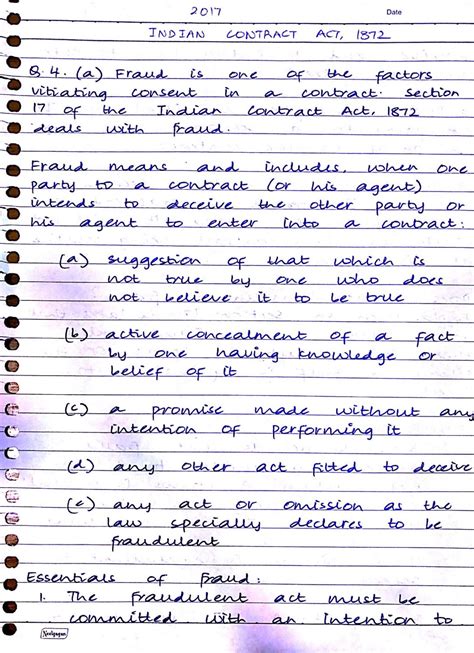 2017
Date
INDIAN CONTRACT ACT, 1872
Q.4. (a) Fraud is one of the factors
vitiating consent in a contract. Section
17 of the Indian Contract Act, 1872
deals with fraud.
Fraud means and includes, when one
party to a contract (or his agent)
intends to deceive the other party or
his agent to enter into a contract:
(a) suggestion of that which is
not true by one who does
not believe it to be true
(b) active concealment of a fact
by one having knowledge or
belief of it
(c) a promise made without any
intention of performing it
(d) any other act fitted to deceive
(e) any act or omission as the
law specially declares to be
fraudulent
Essentials of Fraud:
1. The fraudulent act must be
committed with an intention to
Neelgagan